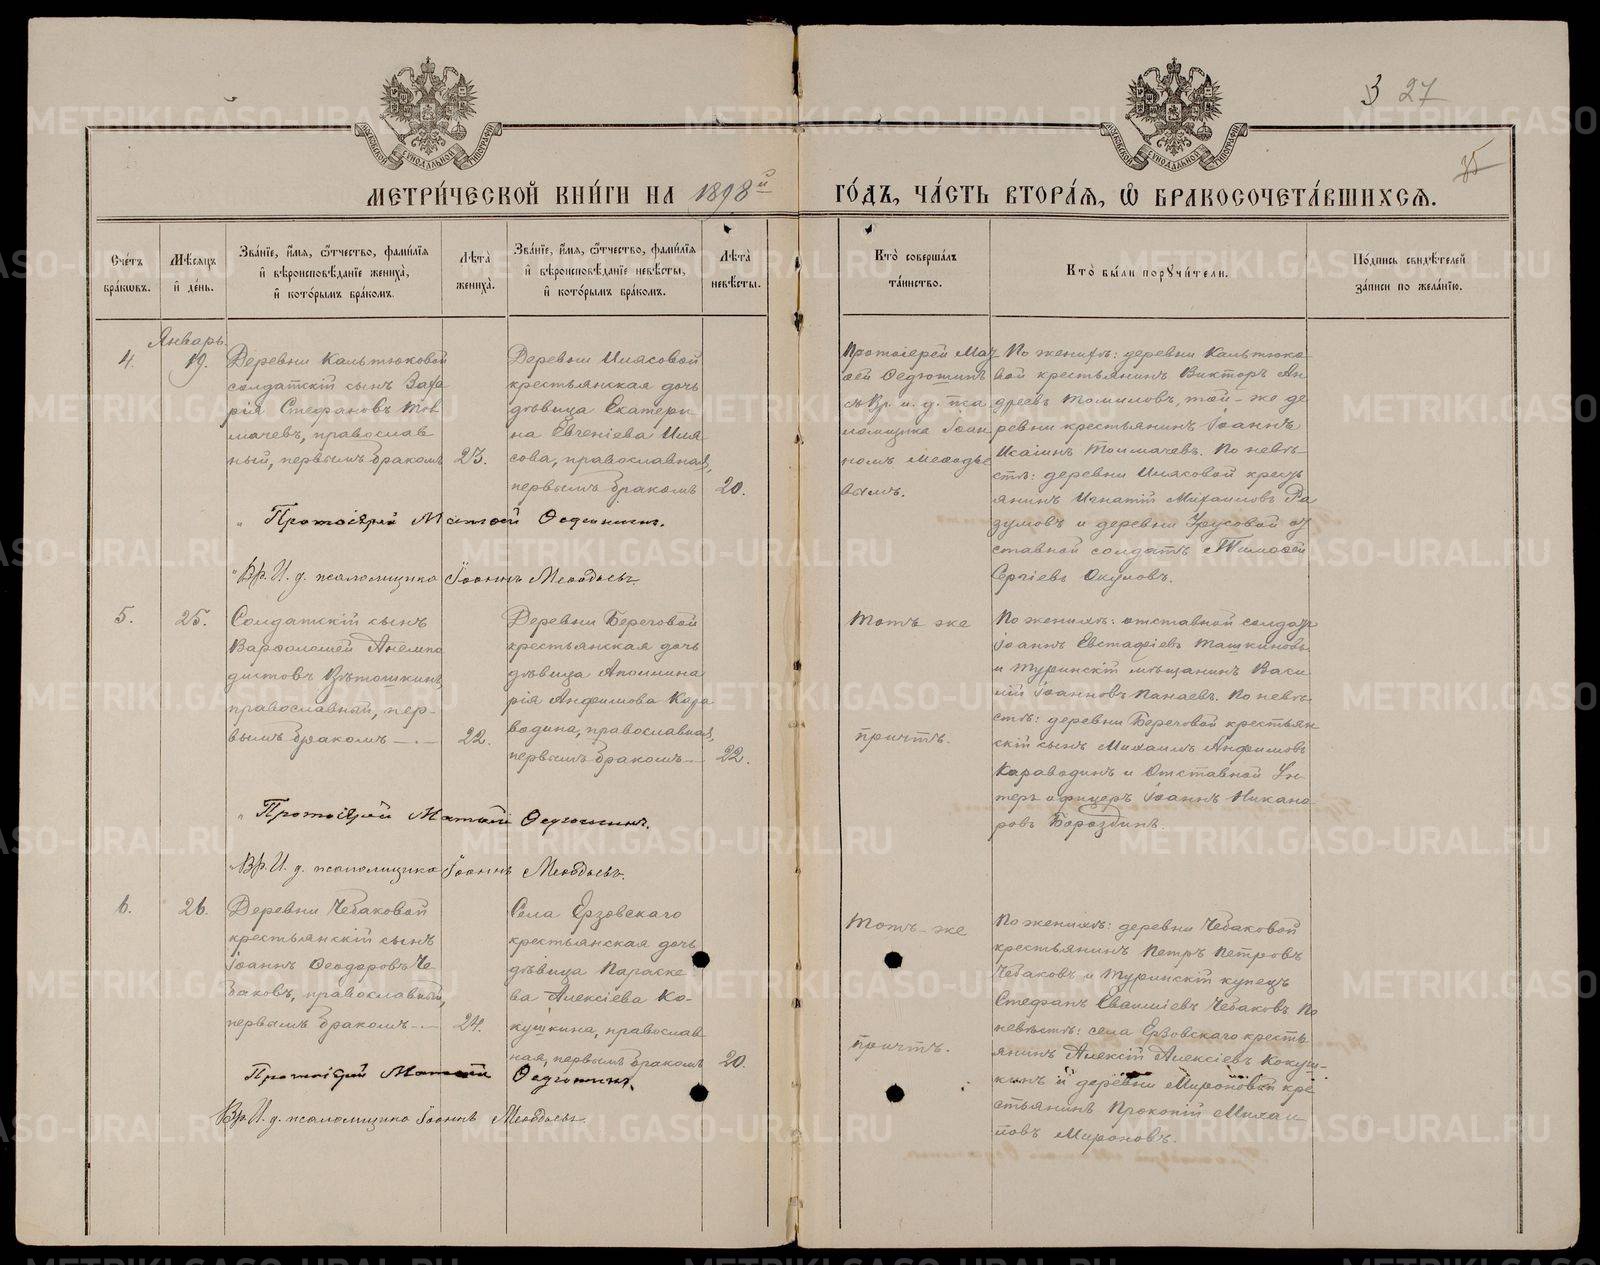 3 27
35
МЕТРИЧЕСКОЙ КНИГИ НА 1898й ГОДЪ, ЧАСТЬ ВТОРАЯ, Ѡ БРАКОСОЧЕТАВШИХСЯ.
Счетъ браковъ.
Мѣсяцъ и день.
Званіе, имя, отчество, фамилія
и вѣроисповѣданіе жениха,
и которымъ бракомъ.
Лѣта
жениха.
Званіе, имя, отчество, фамилія
и вѣроисповѣданіе невѣсты,
и которымъ бракомъ.
Лѣта
невѣсты.
Кто совершалъ
таинство.
Кто были поручители.
Подпись свидѣтелей
записи по желанію.
Январь.
4.
19.
Деревни Кальтюковой
солдатскій сынъ Заха
рія Стефановъ Тол
мачевъ, православ
ный, первымъ бракомъ
23.
Деревни Илясовой
крестьянская дочь
дѣвица Екатери
на Евгеніева Иля
сова, православная,
первымъ бракомъ
20.
Протоіерей Мат
ѳей Ѳедюшинъ
съ Вр. и. д. пса
ломщика Іоан
номъ Меѳодье
вымъ.
По женихѣ: деревни Кальтюко
вой крестьянинъ Викторъ Ан
дреевъ Томиловъ, той-же де
ревни крестьянинъ Іоаннъ
Исаіинъ Толмачевъ. По невѣ
стѣ: деревни Илясовой кресть
янинъ Игнатій Михаиловъ Ра
зумовъ и деревни Урусовой от
ставной солдатъ Тимоѳей
Сергіевъ Окуловъ.
Протоіерей Матѳей Ѳедюшинъ.
Вр. И. д. псаломщика Іоаннъ Меѳодьевъ.
5.
25.
Солдатскій сынъ
Варѳоломей Анемпо
дистовъ Вѣтошкинъ,
православный, пер-
вымъ бракомъ
22.
Деревни Береговой
крестьянская дочь
дѣвица Аполлина
рія Анфимова Кара
водина, православная,
первымъ бракомъ
22.
Тотъ же
причтъ.
По женихѣ: отставной солдатъ
Іоаннъ Евстафіевъ Ташкиновъ
и Туринскій мѣщанинъ Васи
лій Іоанновъ Панаевъ. По невѣ-
стѣ: деревни Береговой крестьян
скій сынъ Михаилъ Анфимовъ
Караводинъ и Отставной Ун
теръ офицеръ Іоаннъ Никано
ровъ Бороздинъ.
Протоіерей Матѳей Ѳедюшинъ.
Вр. И. д. псаломщика Іоаннъ Меѳодьевъ.
6.
26.
Деревни Чебаковой
крестьянскій сынъ
Іоаннъ Ѳеодоровъ Че
баковъ, православный,
первымъ бракомъ
24.
Села Ерзовскаго
крестьянская дочь
дѣвица Параске
ва Алексіева Ко-
кушкина, православ
ная, первымъ бракомъ
20.
Тотъ-же
причтъ.
По женихѣ: деревни Чебаковой
крестьянинъ Петръ Петровъ
Чебаковъ и Туринскій купецъ
Стефанъ Чебаковъ По
невѣстѣ: села Ерзовскаго кресть
янинъ Алексій Алексіевъ Кокуш-
кинъ и деревни Мироновой кре
стьянинъ Прокопій Михаи
ловъ Мироновъ.
Протоіерей Матѳей Ѳедюшинъ.
Вр. И. д. псаломщика Іоаннъ Меѳодьевъ.
METRIKI.GASO-URAL.RU